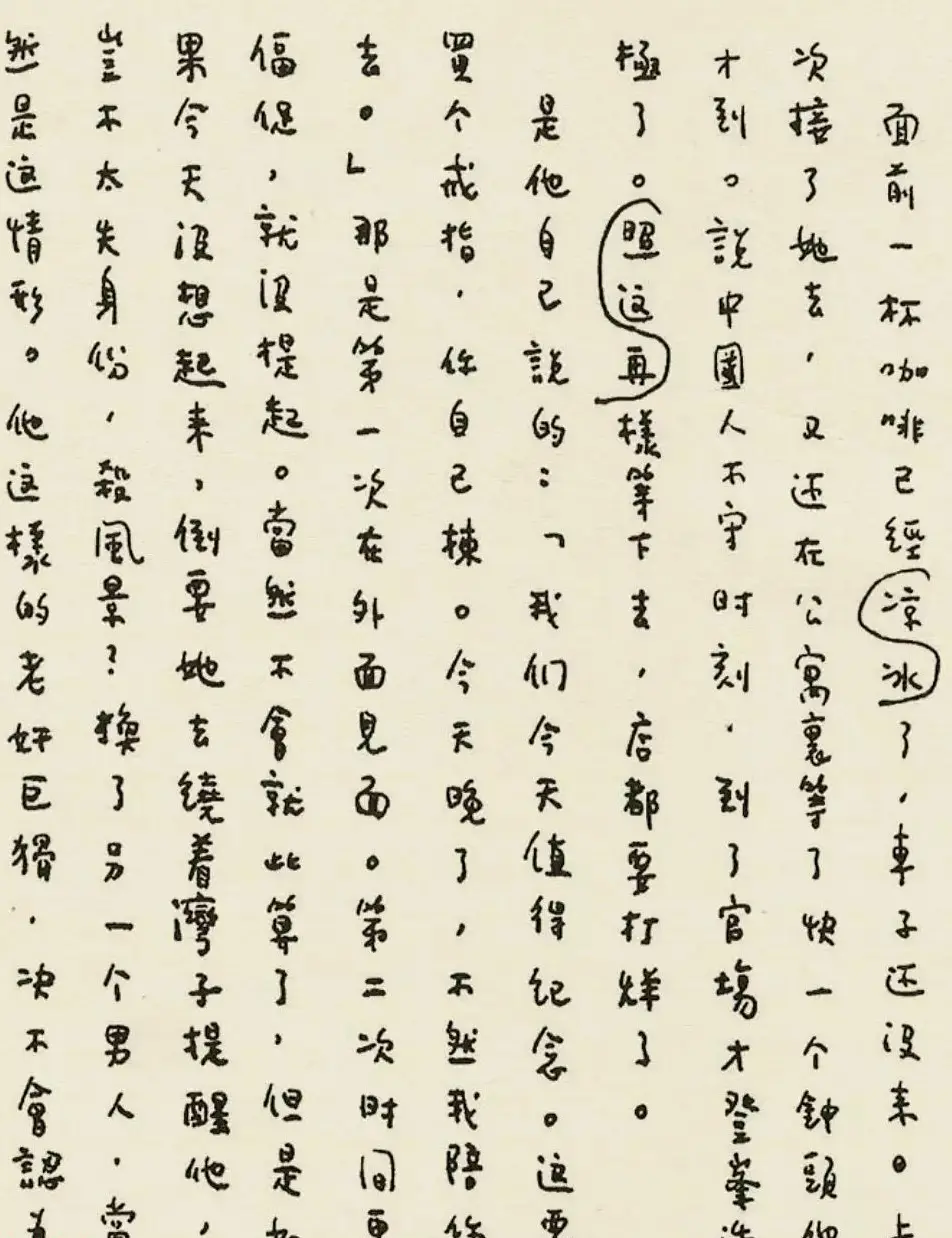 面前一杯咖啡已經凉冰了,車子还没来。上
次接了她去,又还在公寓裏等了快一个鈡頭他
才到。說中國人不守时刻,到了官場才登峯造
極了。照这再樣等下去,店都要打烊了。
是他自己説的:「我们今天值得纪念。这要
買个戒指,你自己揀。今天晚了,不然我陪你
去。」那是第一次在外面見面。第二次时间更
偪促,就没提起。當然不會就此算了,但是如
果今天没想起来,倒要她去繞着灣子提醒他,
豈不太失身份,殺風景?換了另一个男人,當
然是这情形。他这樣的老奸巨猾,决不會認為